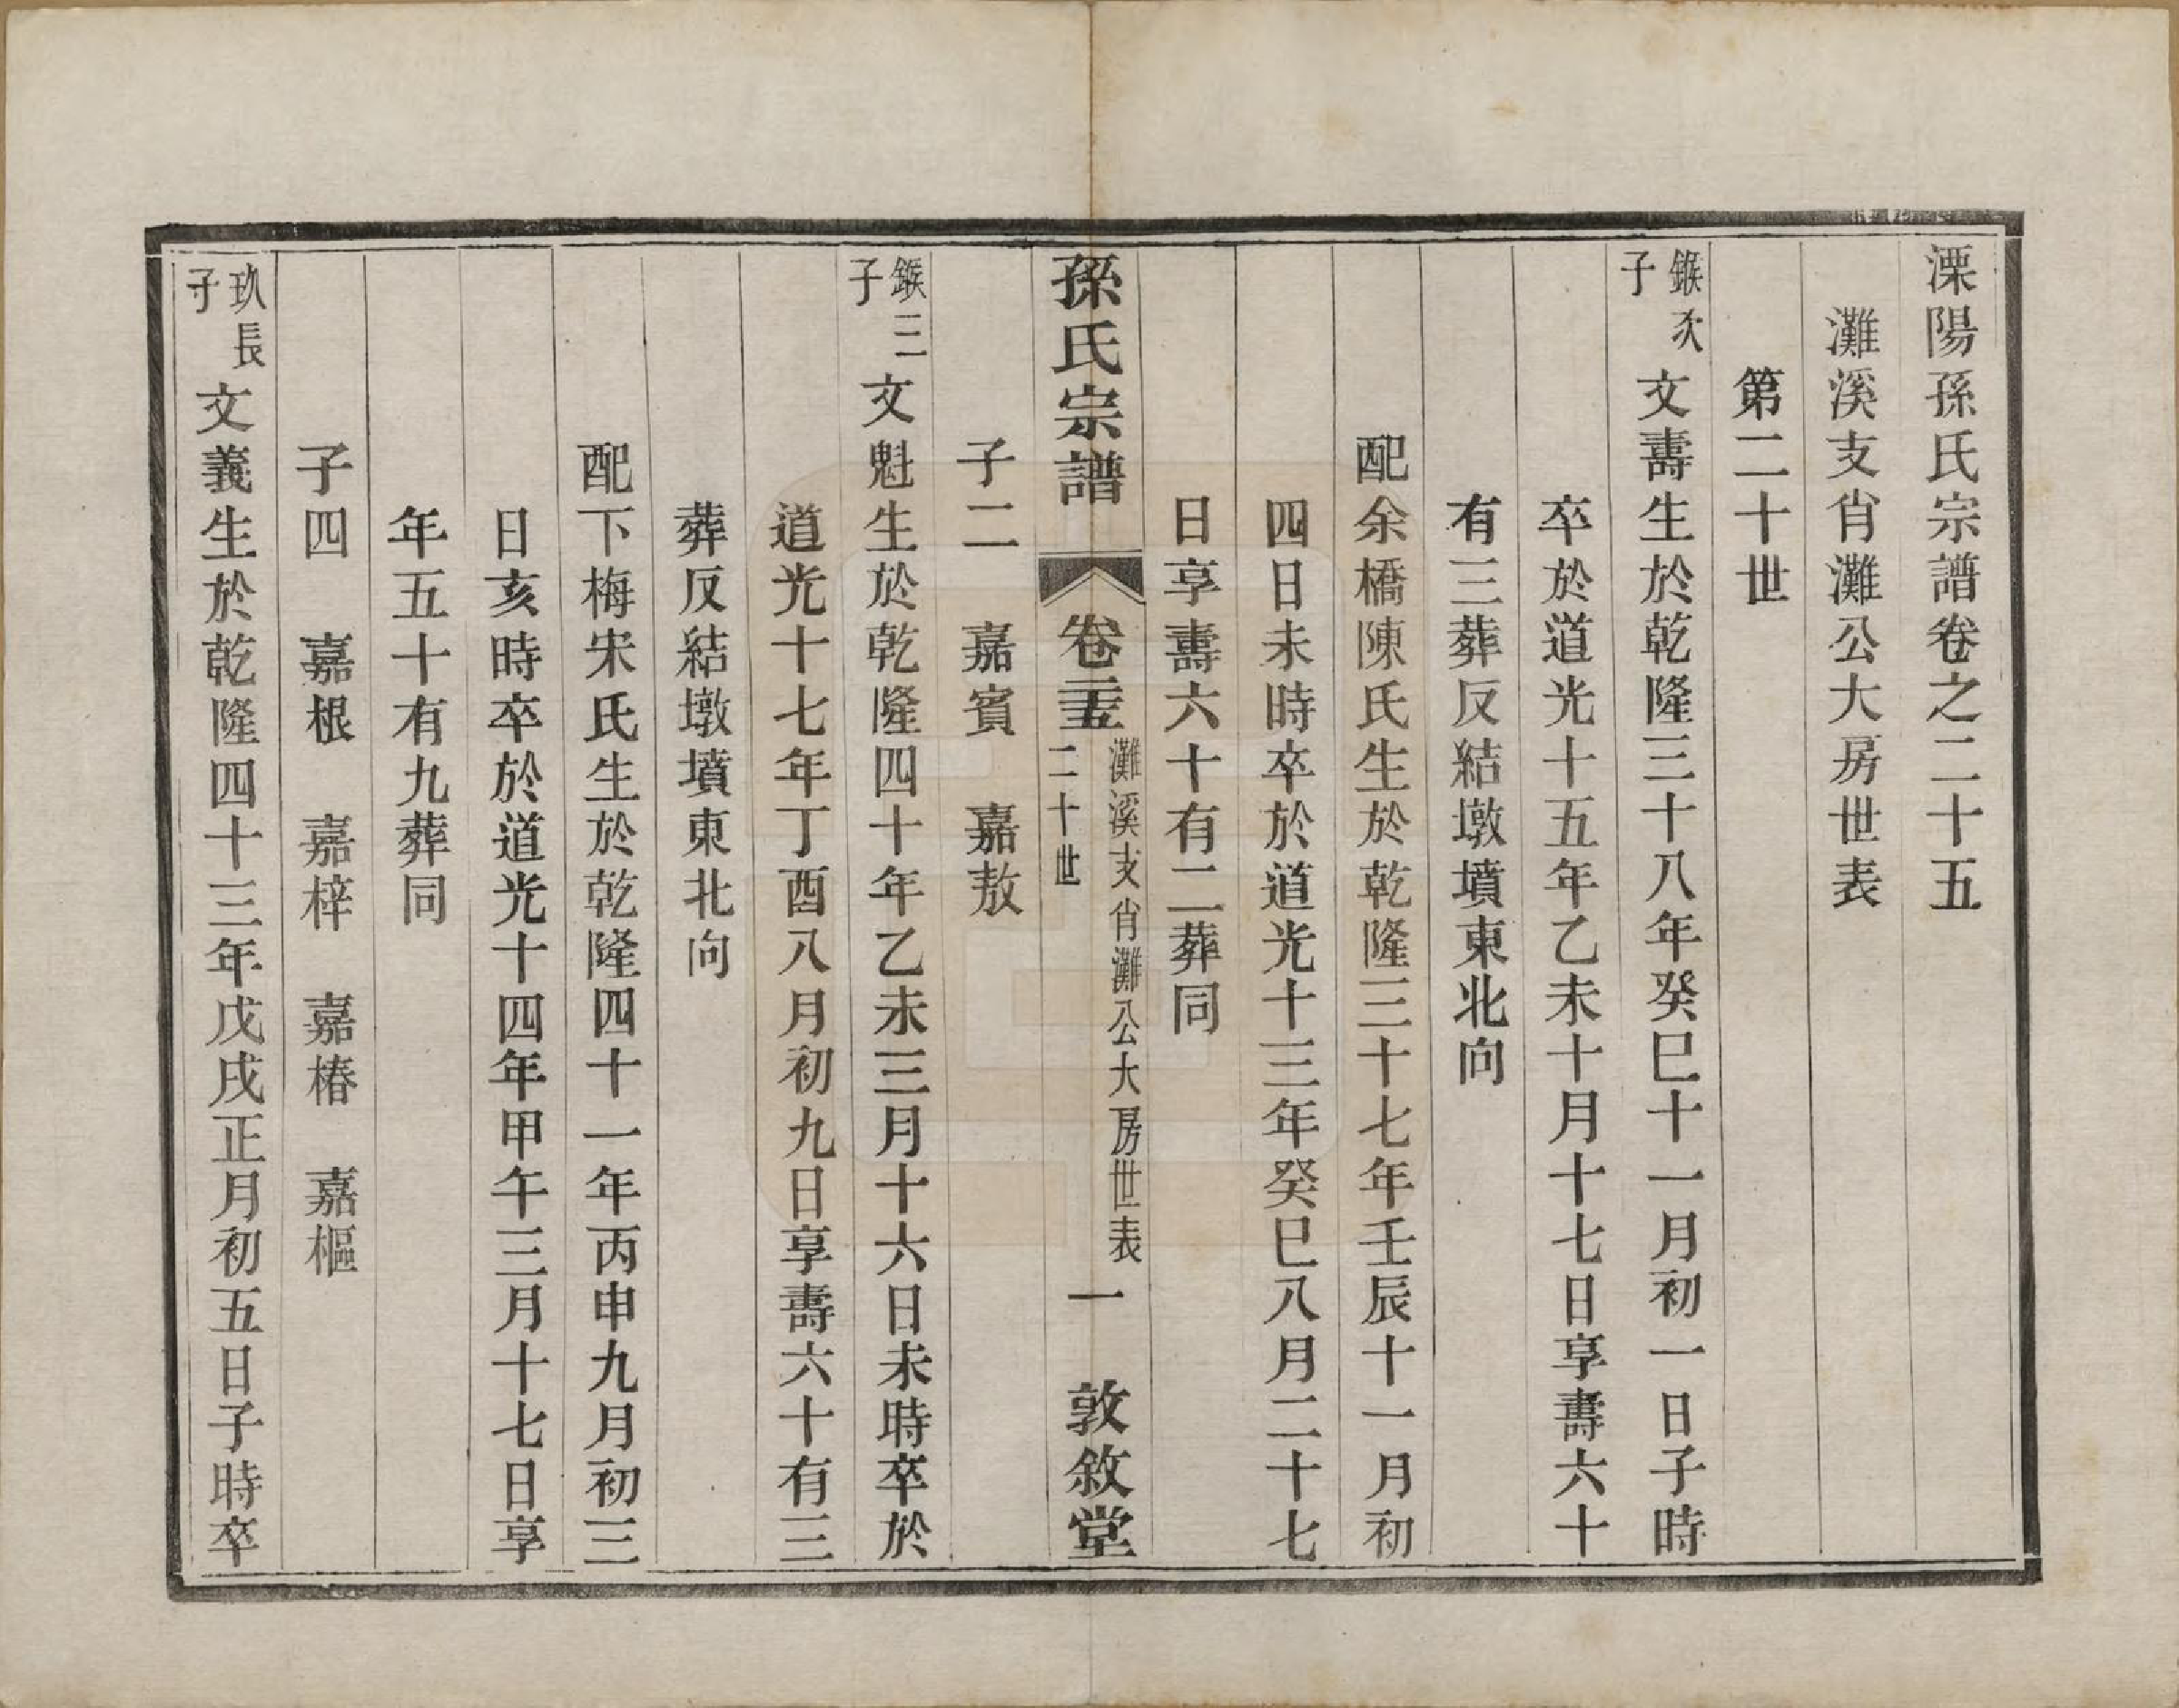 溧陽孫氏宗譜卷之二十五
灘溪支肖灘公大房世表
第二十世
鏃次子
文壽生於乾隆三十八年癸巳十一月初一日子時
卒於道光十五年乙未十月十七日享壽六十
有三葬反結墩墳東北向
配余橋陳氏生於乾隆三十七年壬辰十一月初
四日未時卒於道光十三年癸巳八月二十七
日享壽六十有二葬同
孫氏宗譜
卷二十五
灘溪支肖灘公大房世表
二十世
一
敦敘堂
子二 嘉賓 嘉敖
鏃三子
文魁生於乾隆四十年乙未三月十六日未時卒於
道光十七年丁酉八月初九日享壽六十有三
葬反結墩墳東北向
配下梅宋氏生於乾隆四十一年丙申九月初三
日亥時卒於道光十四年甲午三月十七日享
年五十有九葬同
子四 嘉根 嘉梓 嘉椿 嘉樞
玖長子
文義生於乾隆四十三年戊戌正月初五日子時卒